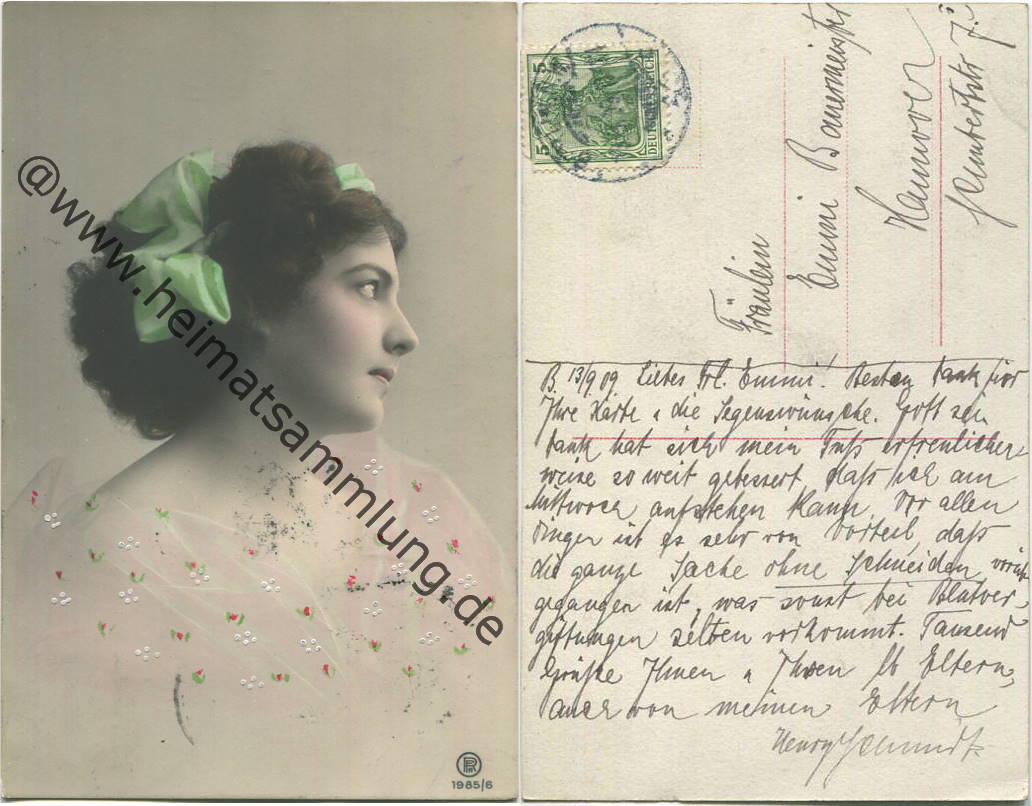 @www.heimatsammlung.de
1985/6
5 5
DEUTSCHES REICH
Fräulein
Emmi Bauermeister
Hannover
B. 13/9 09 Liebes Frl. Emmi! Besten Dank für
Ihre Karte u die Segenswünsche. Gott sei
Dank hat sich mein Fuß erfreulicher-
weise so weit gebessert, daß ich am
Mittwoch aufstehen kann. Vor allen
Dingen ist es sehr von Vorteil, daß
die ganze Sache ohne Schneiden
gegangen ist, was sonst bei Blutver-
giftungen selten vorkommt. Tausend
Grüße Ihnen u Ihren lb Eltern,
auch von meinen Eltern
Henry Schmidt